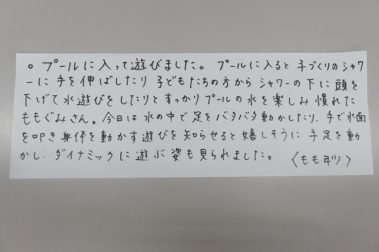 ○ プールに入って遊びました。 プールに入ると手づくりのシャワ
ーに手を伸ばしたり 子どもたちの方から シャワーの下に頭を
下げて水遊びをしたりと すっかりプールの水を楽しみ慣れた
ももぐみさん。今日は水の中で足をバタバタ動かしたり、手で水面
を叩き 身体を動かす遊びを知らせると 嬉しそうに 手足を動
かし、ダイナミックに遊ぶ姿も見られました。 〈もも